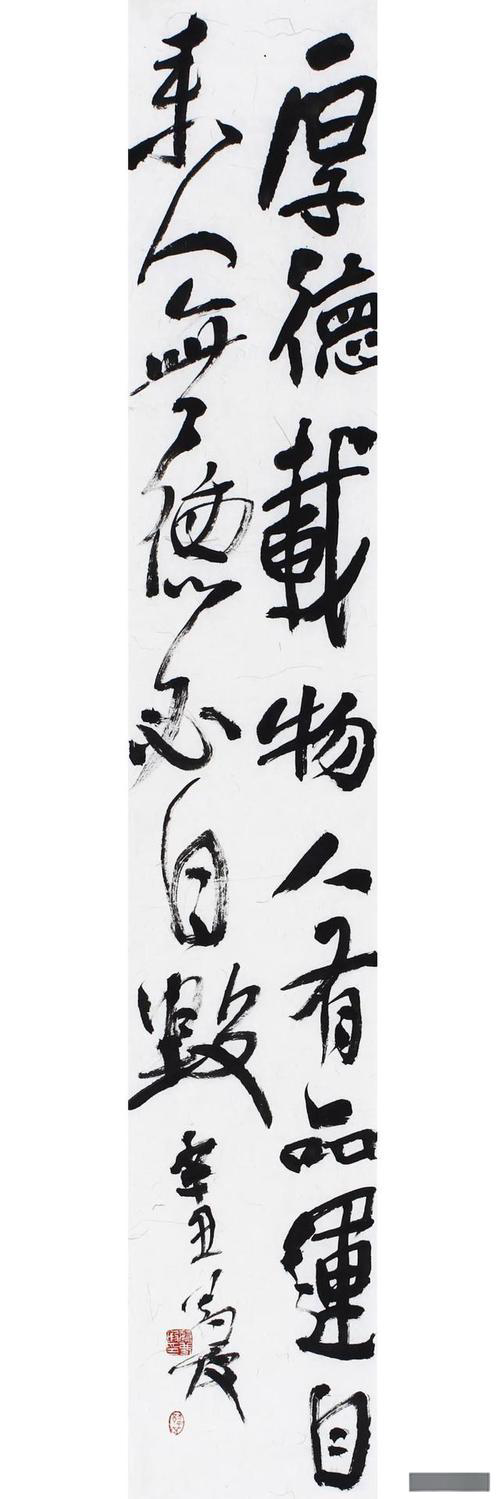 厚德載物人有品運自
来人無德必自毀
辛丑